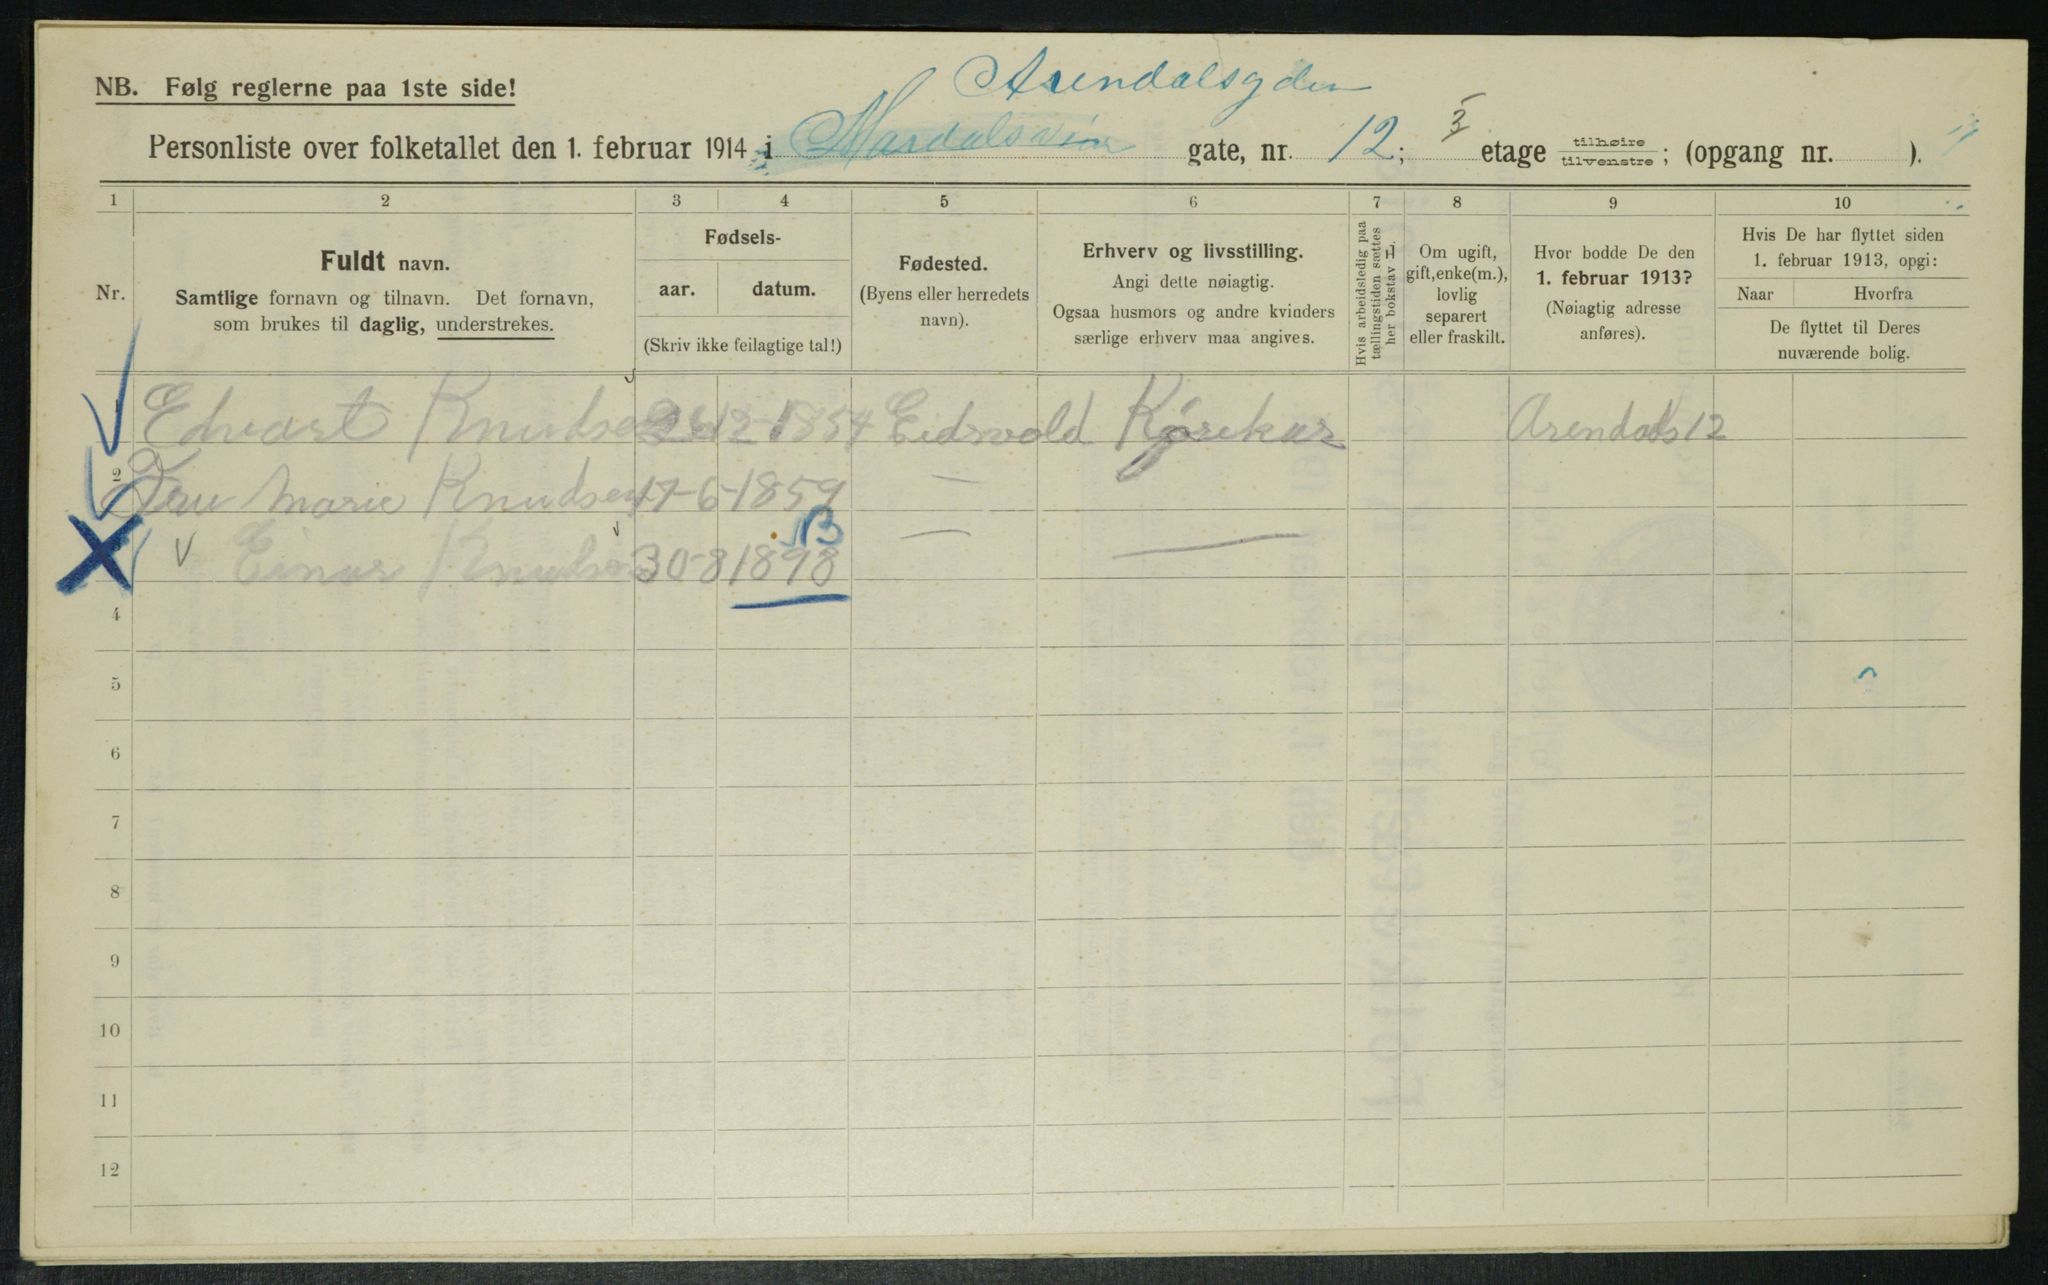 Arendalsgden
NB. Følg reglerne paa 1ste side!
Personliste over folketallet den 1. februar 1914 i Mardalsvien gate, nr. 12; etage tilhøire tilvenstre; (opgang nr. ).
1 2 3 4 5 6 7 8 9 10
Nr.
Fuldt navn.
Samtlige fornavn og tilnavn. Det fornavn,
som brukes til daglig, understrekes.
Fødsels-
aar. datum.
(Skriv ikke feilagtige tal!)
Fødested.
(Byens eller herredets
navn).
Erhverv og livsstilling.
Angi dette nøiagtig.
Ogsaa husmors og andre kvinders
særlige erhverv maa angives.
Hvis arbeidsledig paa
tællingstiden sættes
her bokstav L.
Om ugift,
gift, enke(m.),
lovlig
separert
eller fraskilt.
Hvor bodde De den
1. februar 1913?
(Nøiagtig adresse
anføres).
Hvis De har flyttet siden
1. februar 1913, opgi:
Naar Hvorfra
De flyttet til Deres
nuværende bolig.
1 Edvart Knudsen 26-12-1854 Eidsvold Kjørekar Arendals 12
2 Fru Marie Knudsen 17-6-1859 —
Einar Knudsen 30-8 1898 — —
4
5
6
7
8
9
10
11
12